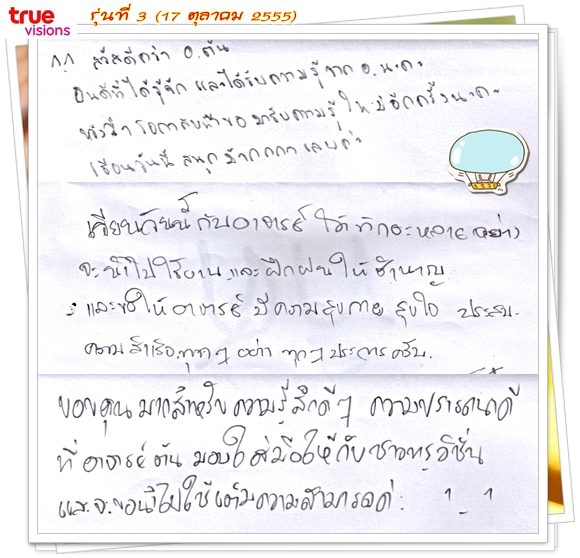 true visions
รุ่นที่ 3 (17 ตุลาคม 2555)
^.^ สวัสดีค่ะ อ.ต้น
ยินดีที่ได้รู้จัก และได้รับความรู้จาก อ. นะคะ
หวังว่าโอกาสหน้าขอมารับความรู้ใหม่อีกครั้งนะคะ
เรียนวันนี้ สนุกมากกกกเลยค่ะ
เรียนวันนี้กับอาจารย์ ได้ทักษะหลายอย่าง
จะนำไปใช้งาน และฝึกฝนให้ชำนาญ
และขอให้อาจารย์ มีความสุขกาย สุขใจ ประสบ
ความสำเร็จทุกๆ อย่า ทุกๆ ประการครับ.
ขอบคุณมากสำหรับความรู้สึกดีๆ ความปรารถนาดี
ที่อาจารย์ต้นมอบใส่มือให้กับชาวทรูวิชั่น
และจะขอนำไปใช้เต็มความสามารถค่ะ